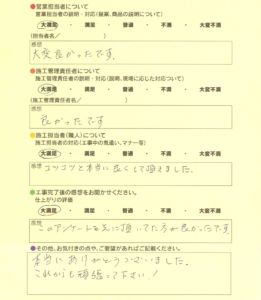 ●営業担当者について
営業担当者の説明・対応(提案、商品の説明について)
大満足 ・ 満足 ・ 普通 ・ 不満 ・ 大変不満
(担当者名／ )
感想
大変良かったです。
●施工管理責任者について
施工管理責任者の説明・対応(説明、現場に応じた対応ついて)
大満足 ・ 満足 ・ 普通 ・ 不満 ・ 大変不満
(施工管理責任者名／ )
感想
良かったです
●施工担当者(職人)について
施工担当者の対応(工事中の気遣い、マナー等)
大満足 ・ 満足 ・ 普通 ・ 不満 ・ 大変不満
感想 コツコツと本当に良くして頂きました。
●工事完了後の感想をお聞かせください。
仕上がりの評価
大満足 ・ 満足 ・ 普通 ・ 不満 ・ 大変不満
感想
このアンケートを先に頂いてた方が良かったです
●その他、お気付きの点や、ご要望があればご記載ください。
本当にありがとうございました。
これからも頑張って下さい!